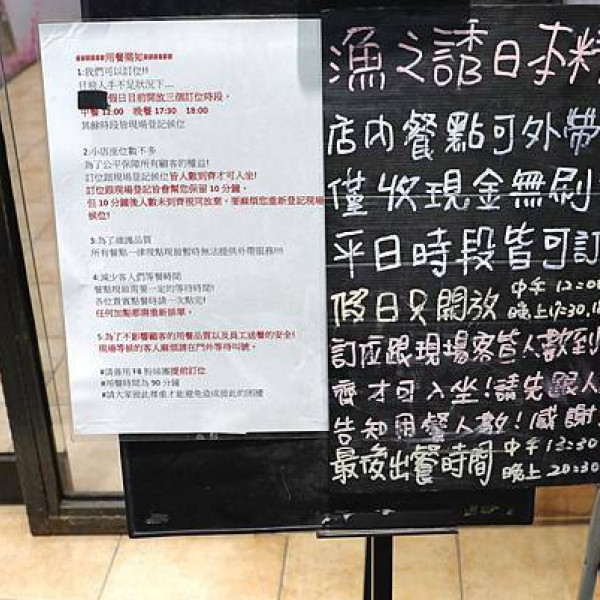 ######用餐需知######
1:我們可以訂位!!
目前人手不足狀況下...
假日目前開放三個訂位時段,
中餐 12:00 晚餐 17:30 18:00
其餘時段皆現場登記候位
2:小店座位數不多
為了公平保障所有顧客的權益!
訂位跟現場登記候位皆人數到齊才可入坐!
訂位跟現場登記皆會幫您保留 10 分鐘,
但 10 分鐘後人數未到齊視同放棄，要麻煩您重新登記現場
候位!
3:為了維護品質
所有餐點一律現點現做暫時無法提供外帶服務!!!!
4:減少客人們等餐時間
餐點現做需要一定的等待時間!
各位貴賓點餐時請一次點完!
任何加點都需重新排單。
5:為了不影響顧客的用餐品質以及員工送餐的安全!
現場等候的客人麻煩請在門外等待叫號。
#請善用 FB 粉絲團提前訂位
#用餐時間為 90 分鐘
#請大家彼此尊重才能避免造成彼此的困擾
漁之誘日本料
店內餐點可外帶
僅收現金無刷
平日時段皆可訂
假日只開放 中午 12:00
晚上17:30,18
訂位跟現場客皆人數到
齊才可入坐!請先跟人
告知用餐人數!感謝
最後出餐時間 中午 13:30
晚上 20:30